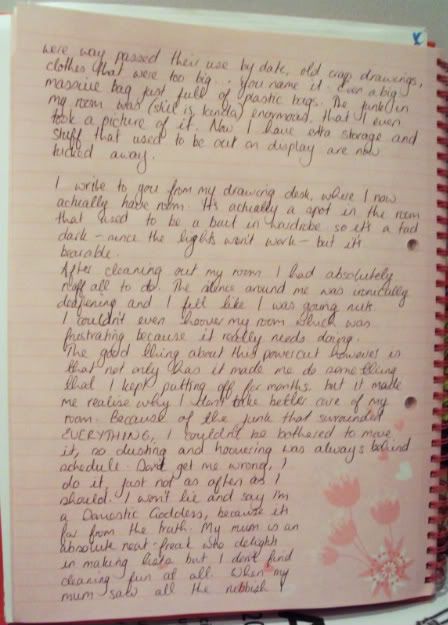 were way passed their use by date, old crap drawings,
clothes that were too big... you name it. even a big
massive bag just full of plastic bags. The junk in
my room was (still is, kinda) enormous, that I even
took a picture of it. Now I have extra storage and
stuff that used to be out on display are now
tucked away.
I write to you from my drawing desk, where I now
actually have room. It's actually a spot in the room
that used to be a built in wardrobe so it's a tad
dark - since the lights won't work - but it's
bearable.
After cleaning out my room I had absolutely
all to do. The silence around me was ironically
deafening and I felt like I was going nuts.
I couldn't even hoover my room which was
frustrating because it really needs doing.
The good thing about this powercut however is
that not only has it made me do something
that I kept putting off for months, but it made
me realise why I don't take better care of my
room. Because of the junk that surrounded
EVERYTHING, I couldn't be bothered to move
it, so dusting and hoovering was always behind
schedule. Don't get me wrong, I
do it, just not as often as I
should. I won't lie and say I'm
a Domestic Goddess, because it's
far from the truth. My mum is an
absolute neat-freak who delights
in making lists but I don't find
cleaning fun at all. When my
mum saw all the rubbish I